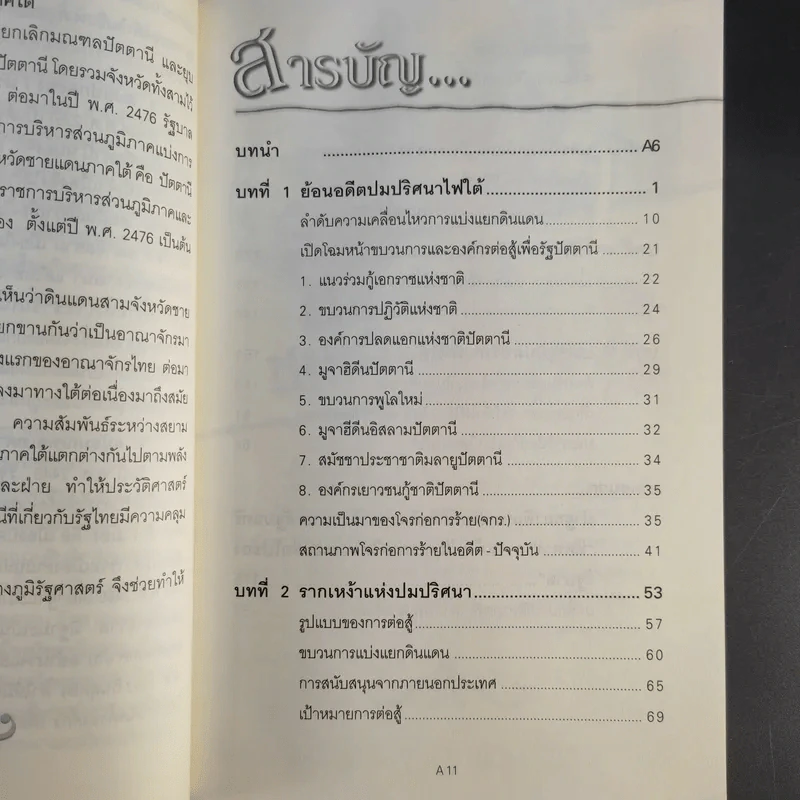 ยกเลิกมณฑลปัตตานี และยุบ
ปัตตานี โดยรวมจังหวัดทั้งสามไว้
ต่อมาในปี พ.ศ. 2476 รัฐบาล
การบริหารส่วนภูมิภาคแบ่งการ
หวัดชายแดนภาคใต้ คือ ปัตตานี
ราชการบริหารส่วนภูมิภาคและ
ตั้งแต่ปี พ.ศ. 2476 เป็นต้น
เห็นว่าดินแดนสามจังหวัดชาย
ยกขานกันว่าเป็นอาณาจักรมา
งแรกของอาณาจักรไทย ต่อมา
ลงมาทางใต้ต่อเนื่องมาถึงสมัย
ความสัมพันธ์ระหว่างสยาม
ภาคใต้แตกต่างกันไปตามพลัง
ละฝ่าย ทำให้ประวัติศาสตร์
นีที่เกี่ยวกับรัฐไทยมีความคลุม
างภูมิรัฐศาสตร์ จึงช่วยทำให้
สารบัญ...
บทนำ ........ A6
บทที่ 1 ย้อนอดีตปมปริศนาไฟใต้ ........ 1
ลำดับความเคลื่อนไหวการแบ่งแยกดินแดน ........ 10
เปิดโฉมหน้าขบวนการและองค์กรต่อสู้เพื่อรัฐปัตตานี ........ 21
1. แนวร่วมกู้เอกราชแห่งชาติ ........ 22
2. ขบวนการปฏิวัติแห่งชาติ ........ 24
3. องค์การปลดแอกแห่งชาติปัตตานี ........ 26
4. มูจาฮิดีนปัตตานี ........ 29
5. ขบวนการพูโลใหม่ ........ 31
6. มูจาฮีดีนอิสลามปัตตานี ........ 32
7. สมัชชาประชาชาติมลายูปัตตานี ........ 34
8. องค์กรเยาวชนกู้ชาติปัตตานี ........ 35
ความเป็นมาของโจรก่อการร้าย(จกร.) ........ 35
สถานภาพโจรก่อการร้ายในอดีต - ปัจจุบัน ........ 41
บทที่ 2 รากเหง้าแห่งปมปริศนา ........ 53
รูปแบบของการต่อสู้ ........ 57
ขบวนการแบ่งแยกดินแดน ........ 60
การสนับสนุนจากภายนอกประเทศ ........ 65
เป้าหมายการต่อสู้ ........ 69
A 11